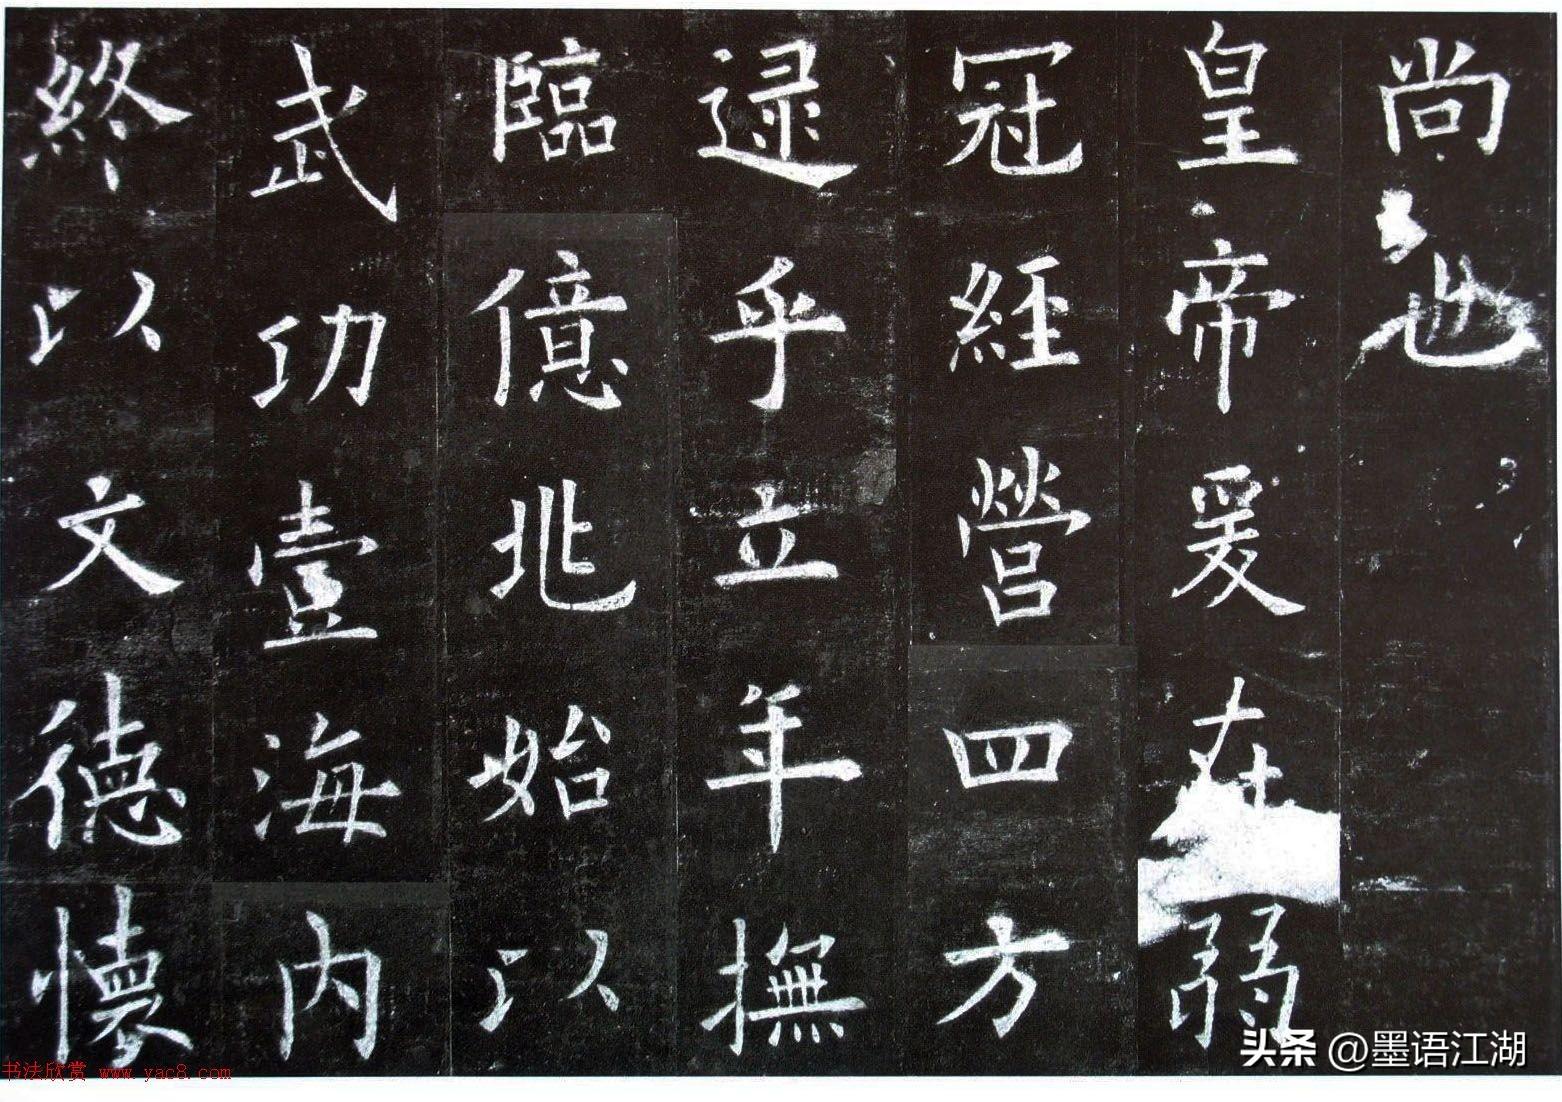 尚也
皇帝爰在弱
冠經營四方
逯乎立年撫
臨億兆始以
武功壹海内
終以文德懷
头条 @墨语江湖
书法欣赏 www.yac8.com